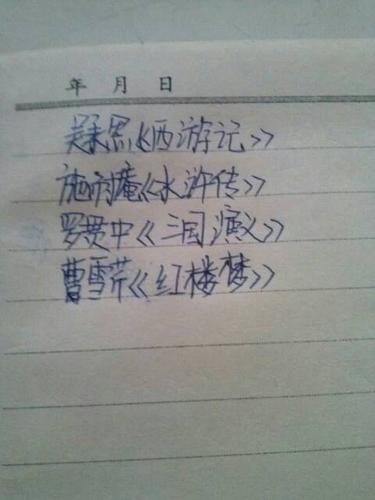 年 月 日
吴承恩《西游记》
施耐庵《水浒传》
罗贯中《三国演义》
曹雪芹《红楼梦》